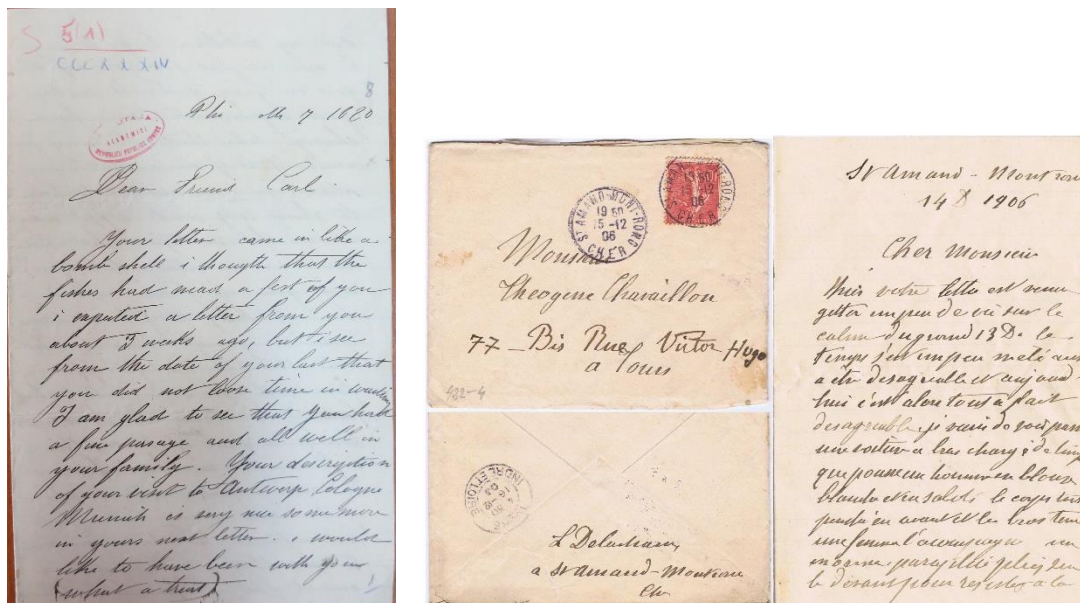 5(1)
CCCXXXIV
8
7 1820
ACADEMIEI
Dear Friend Carl
Your letter came in like a
bomb shell i thougth that the
fishes had mead a fest of you
i expected a letter from you
about 3 weeks ago, but i see
from the date of your last that
you did not loose time in
I am glad to see that you had
a fine passage and all well in
your family. Your description
of your visit to Antwerp Cologne
Munich is very nice some more
in yours next letter. i would
like to have been with you
(what a treat)
ST AMAND-MONT-ROND
19 50
15-12
06
CHER
Monsieur
Theogene Chavaillon
77 Bis Rue Victor Hugo
a Tours
482-4
INDRE ET LOIRE
L Delacham
a St amand-Montron
Cher
St Amand - Montron
14 D 1906
Cher Monsieur
votre lettre est venue
un peu de vie sur le
calme du grand 13 D. le
temps s'est un peu
a être desagreable et aujourd
hui c'est alors tout a fait
desagreable. je viens de voir
une voiture a bras
que pousse un homme en blouse
blanche et en sabots le corps
penché en avant et les bras
une femme l'accompagne un